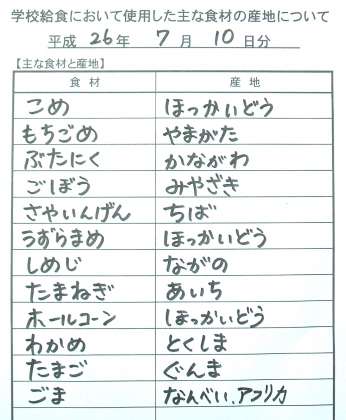 学校給食において使用した主な食材の産地について
平成 26年 7月 10日分
【主な食材と産地】
食材 産地
こめ ほっかいどう
もちごめ やまがた
ぶたにく かながわ
ごぼう みやざき
さやいんげん ちば
うずらまめ ほっかいどう
しめじ ながの
たまねぎ あいち
ホールコーン ほっかいどう
わかめ とくしま
たまご ぐんま
ごま なんべい、アフリカ